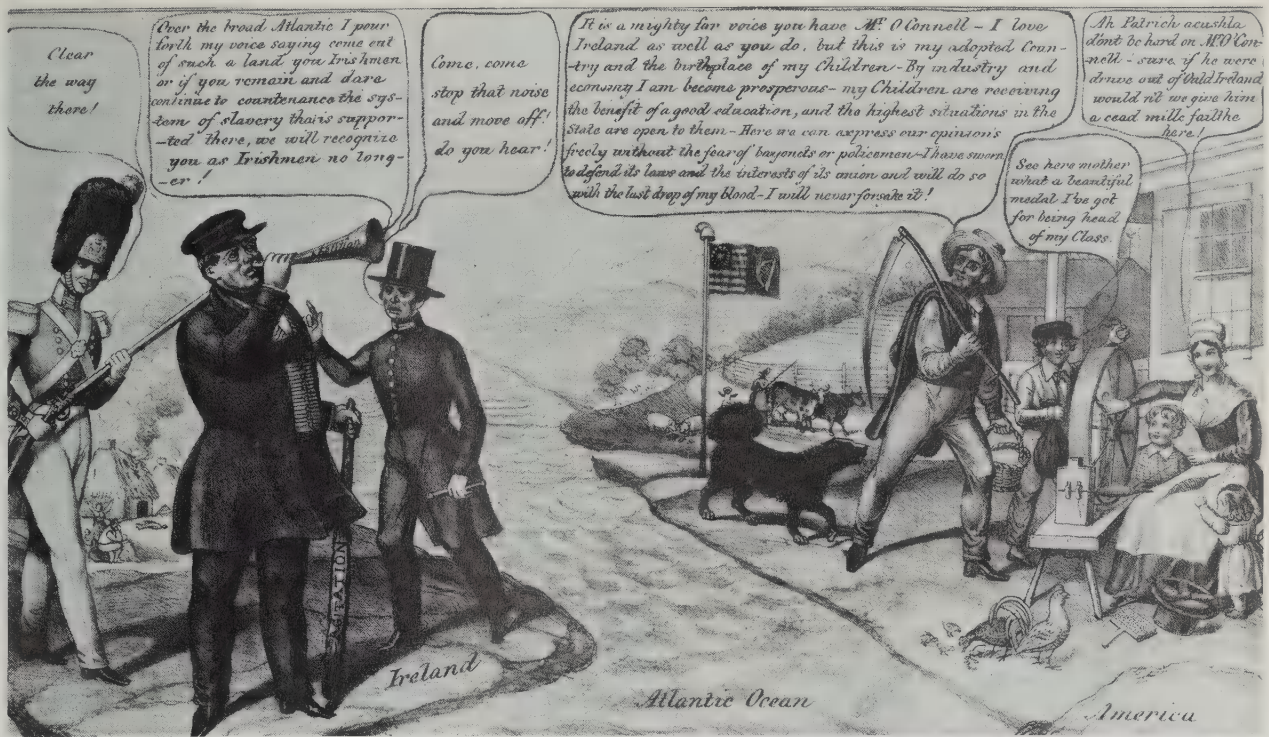 Clear
the way
there!
Over the broad Atlantic I pour
forth my voice saying come out
of such a land you Irishmen
or if you remain and dare
continue to countenance the sys-
-tem of slavery that is suppor-
-ted there, we will recognize
you as Irishmen no long-
-er!
Come, come
stop that noise
and move off!
do you hear!
It is a mighty far voice you have Mr. O'Connell - I love
Ireland as well as you do, but this is my adopted Coun-
-try and the birthplace of my Children - By industry and
economy I am become prosperous - my Children are receiving
the benefit of a good education, and the highest situations in the
State are open to them - Here we can express our opinion's
freely without the fear of bayonets or policemen - I have sworn
to defend its laws and the interests of its union and will do so
with the last drop of my blood - I will never forsake it!
Ah Patrick acushla
don't be hard on Mr. O'Con-
-nell - sure if he were
druve out of Ould Ireland
would n't we give him
a cead mille failthe
here!
See here mother
what a beautiful
medal I've got
for being head
of my Class.
AGITATION
Ireland
Atlantic Ocean
America